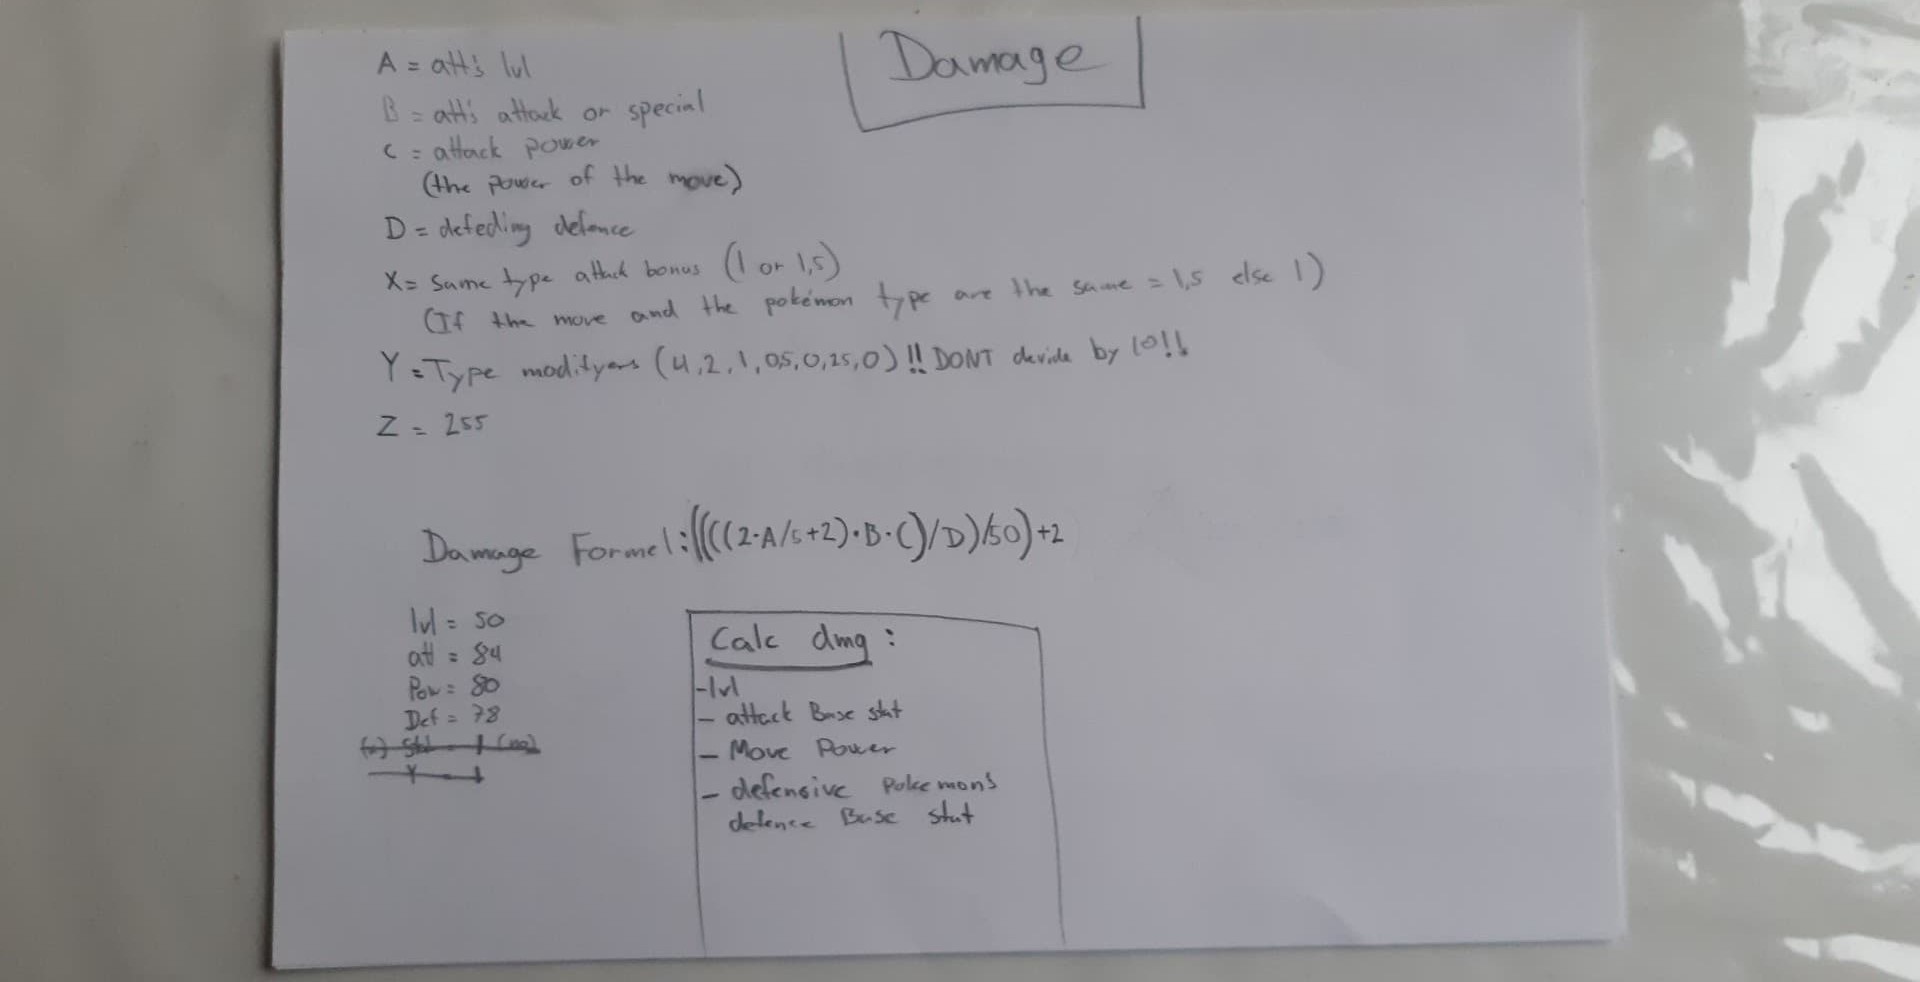 Damage
A = att's lvl
B = att's attack or special
C = attack power
(the power of the move)
D = defeding defence
X = Same type attack bonus (1 or 1,5)
(If the move and the pokémon type are the same = 1,5 else 1)
Y = Type modityers (4,2,1,0,5,0,25,0) !! DONT devide by 10!!
Z = 255
Damage Formel: ((((2·A/5+2)·B·C)/D)/50)+2
lvl = 50
att = 84
Pow = 80
Def = 78
Y = 1
Calc dmg:
-lvl
- attack Base stat
- Move Power
- defensive Pokemons
defence Base stat